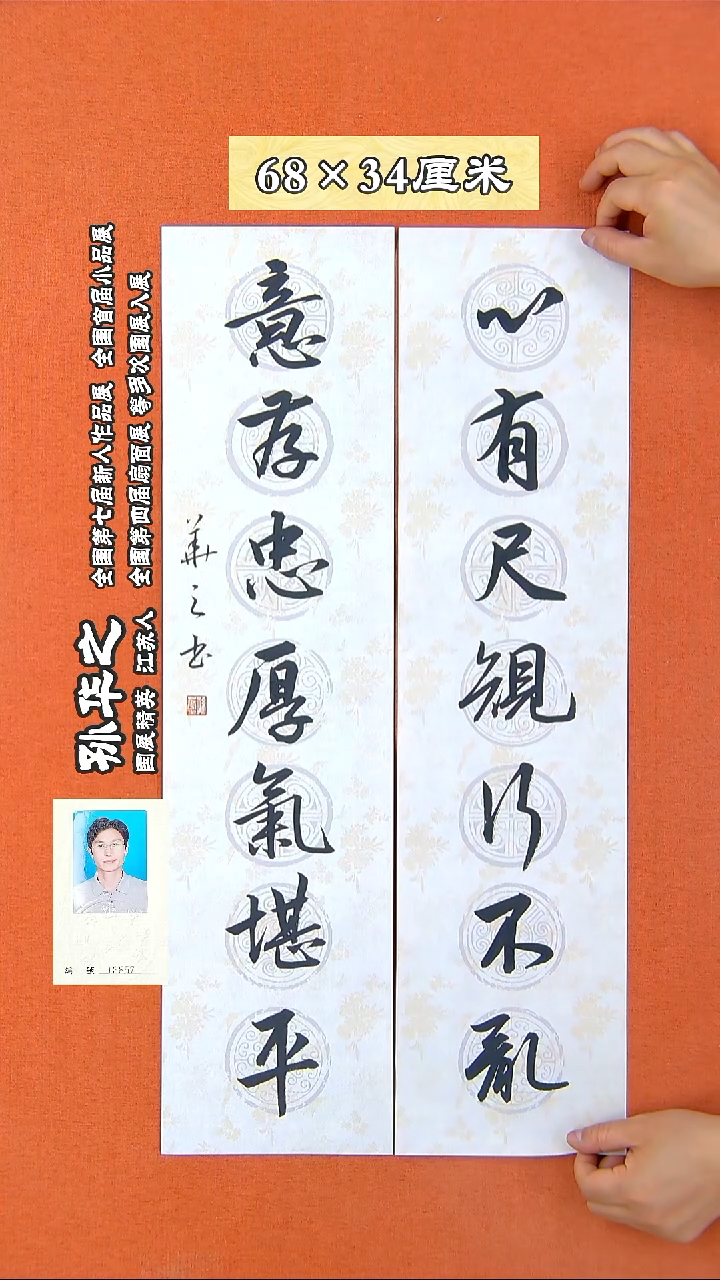 68×34厘米
心有尺規行不亂
意存忠厚氣堪平
華之书
孙华之
国展精英 江苏人
全国第七届新人作品展 全国首届小品展
全国第四届扇面展 等多次国展入展
编 号